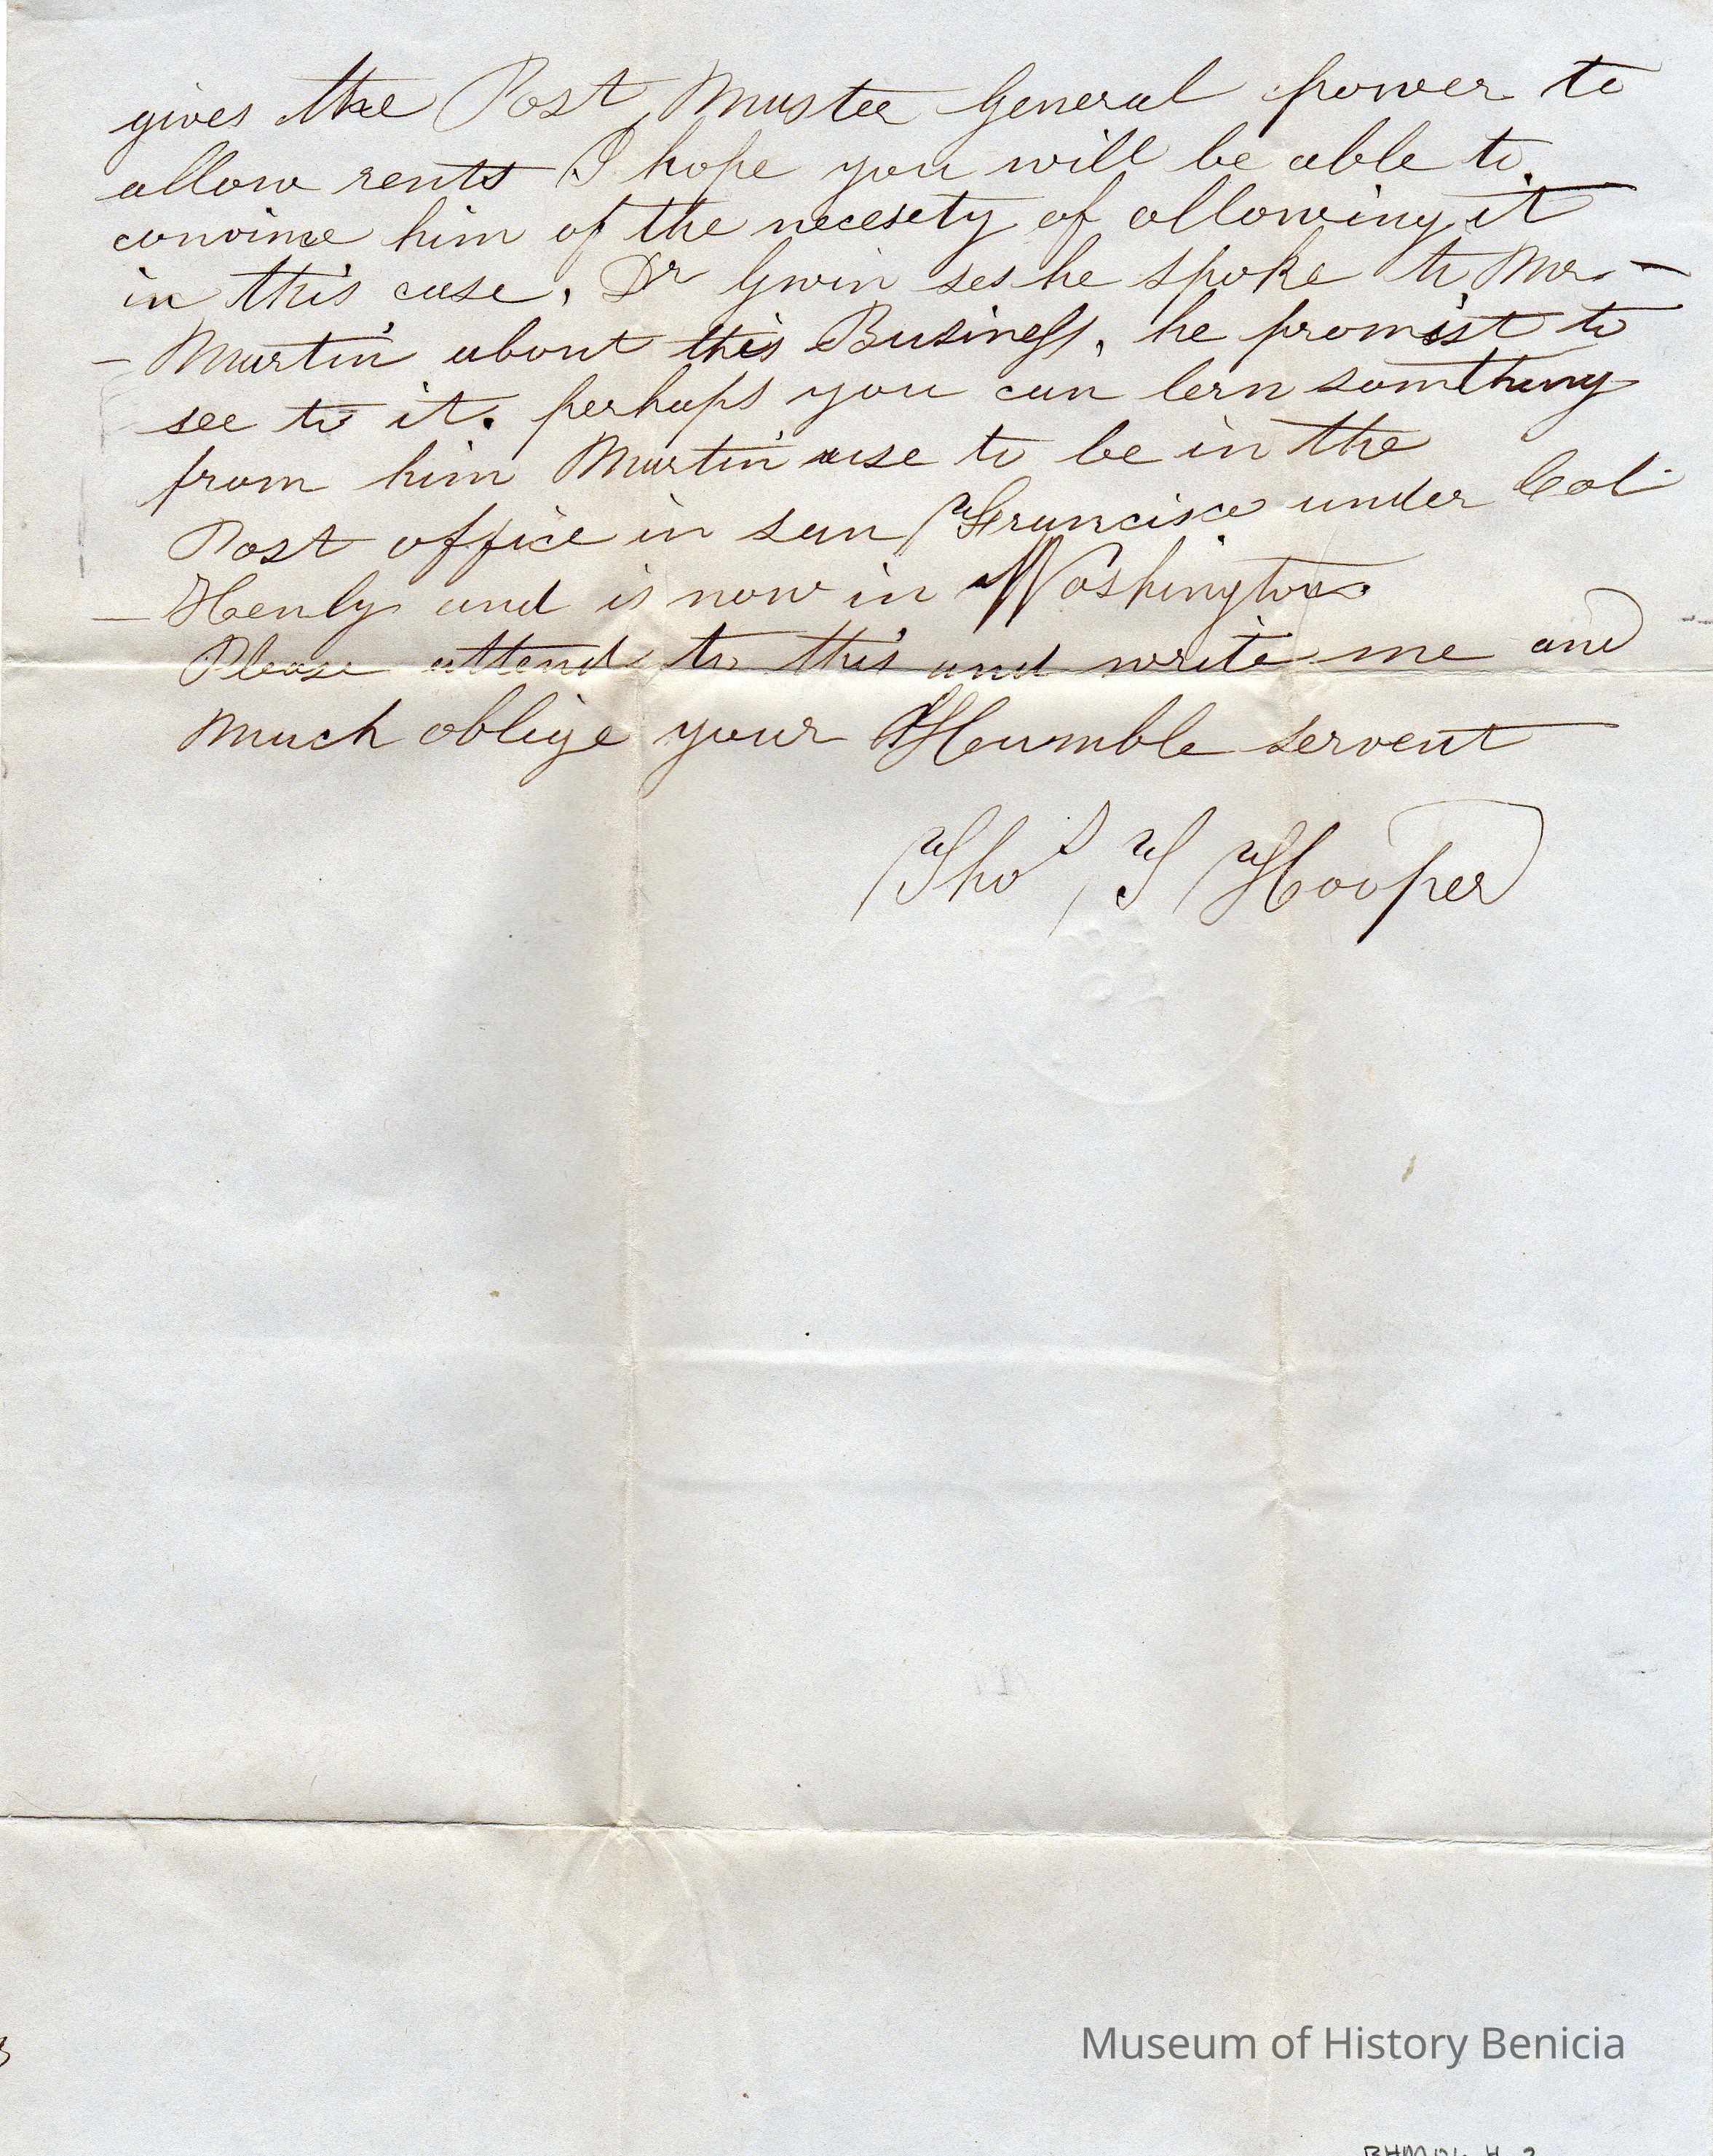 gives the Post Master General power to
allow rents I hope you will be able to
convince him of the necesety of allowing it
in this case, Dr Gwin ses he spoke to Mr
Martin about this Business, he promist to
see to it. perhaps you can lern somthing
from him Martin use to be in the
Post office in san Francisco under Col
Henly and is now in Washington.
Please attend to this and write me and
much oblige your Humble servent
Thos T Hooper
Museum of History Benicia